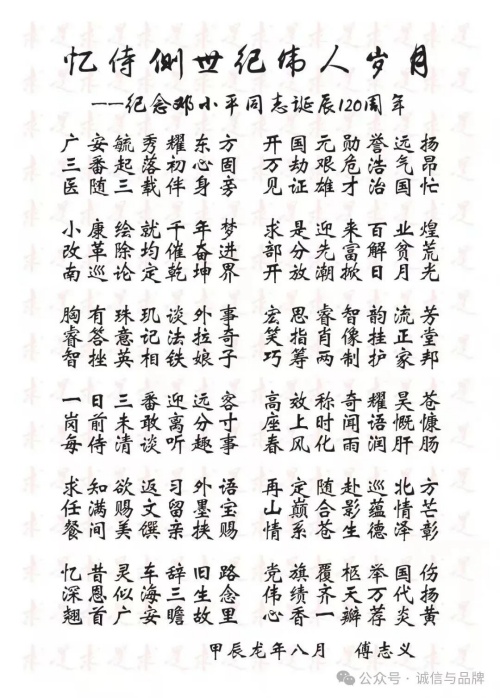 忆侍侧世纪伟人岁月
---纪念邓小平同志诞辰120周年
广安毓秀耀东方 开国元勋誉远扬
三番起落初心固 万劫艰危浩气昂
医随三载伴身旁 见证雄才治国忙
小康绘就千年梦 求是迎来百业煌
改革除均催奋进 部分先富解贫荒
南巡论定乾坤界 开放潮掀日月光
胸有珠玑谈外事 宏思睿智韵流芳
睿答意记法拉奇 笑指肖像挂正堂
智挫英相铁娘子 巧筹两制护家邦
一日三番迎远客 高效称奇耀昊苍
岗前未敢离分寸 座上时闻语慨慷
每侍清谈听趣事 春风化雨润肝肠
求知欲返习外语 再定随赴巡北方
任满赐文留墨宝 山巅合影蕴情芒
餐间美馔亲挟赐 情系苍生德泽彰
忆昔灵车辞旧路 党旗覆柩举国伤
深恩似海三生念 伟绩齐天万代扬
翘首广安瞻故里 心香一瓣荐炎黄
甲辰龙年八月 傅志义
公众号·诚信与品牌